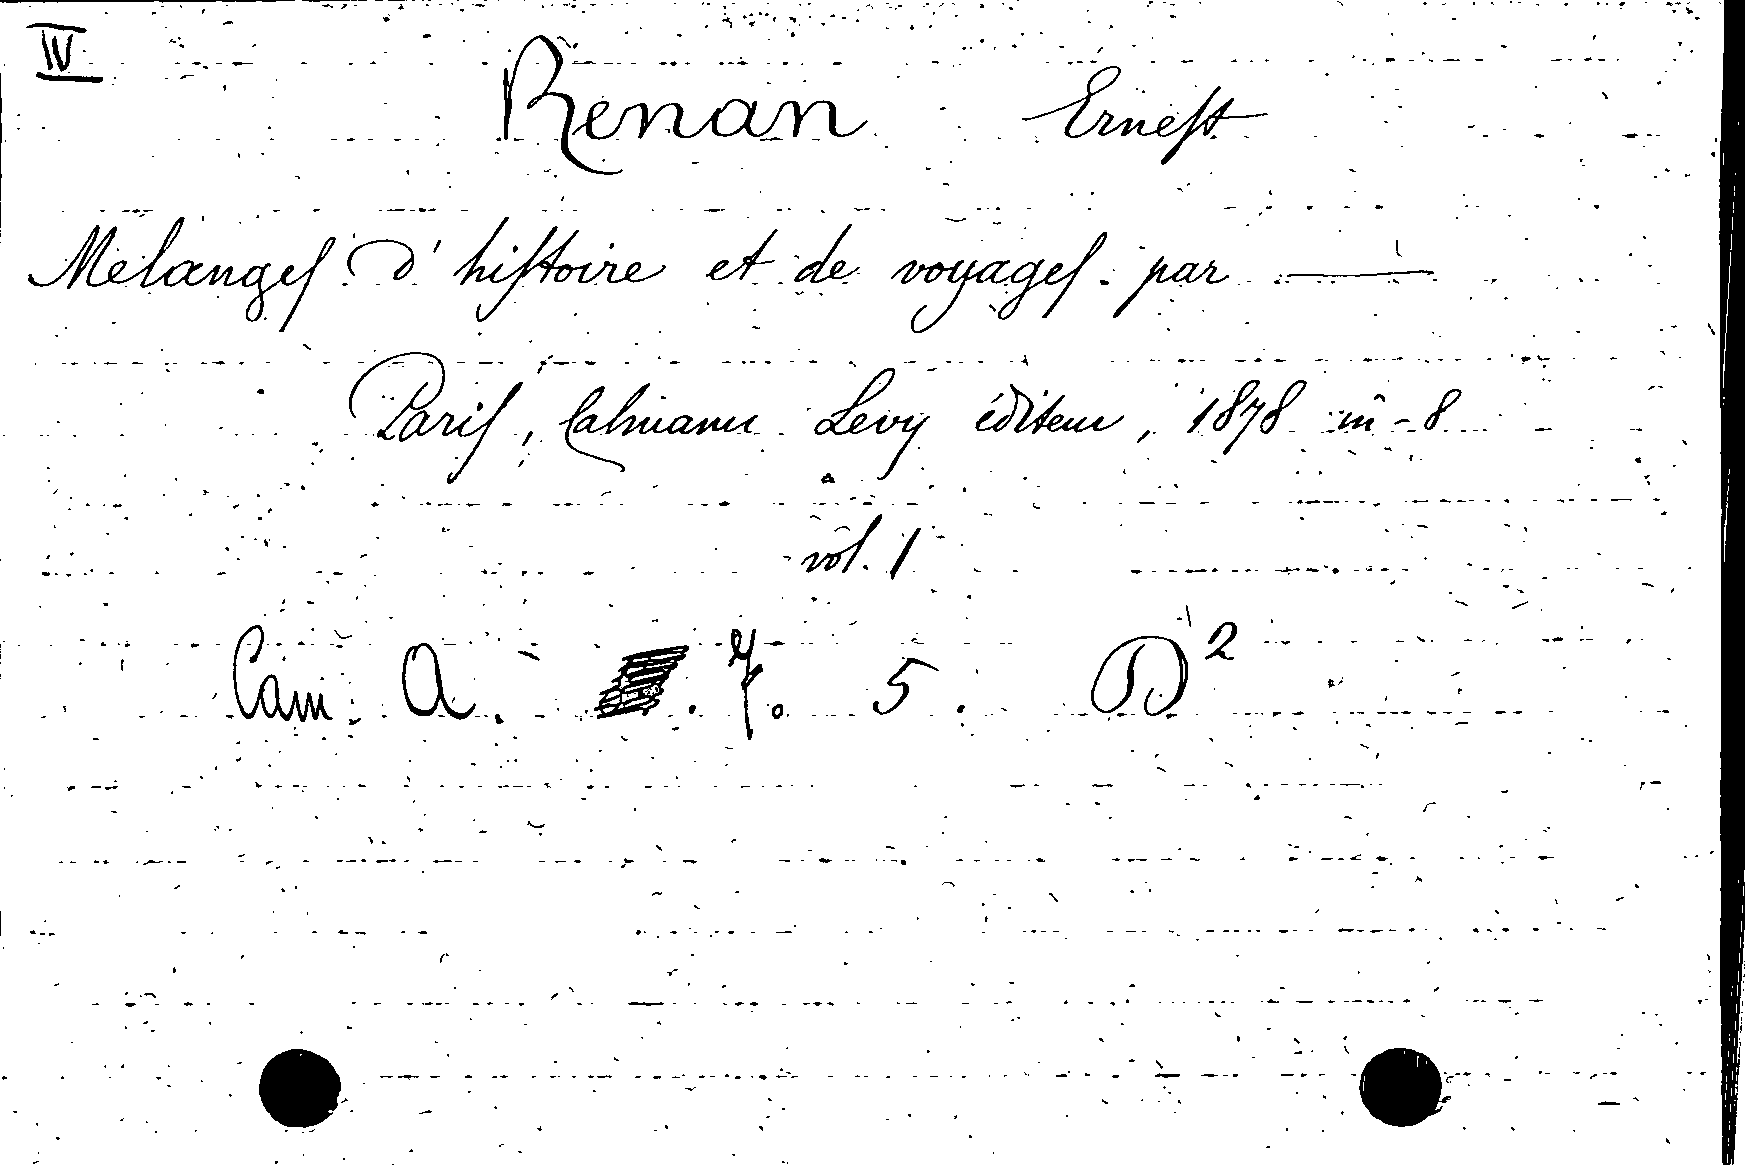 IV
Renan Ernest
Melanges d'histoire et de voyages par ——
Paris, Calmann Levy éditeur, 1878 in-8
vol. 1
Cam. A. 7. 5. D²